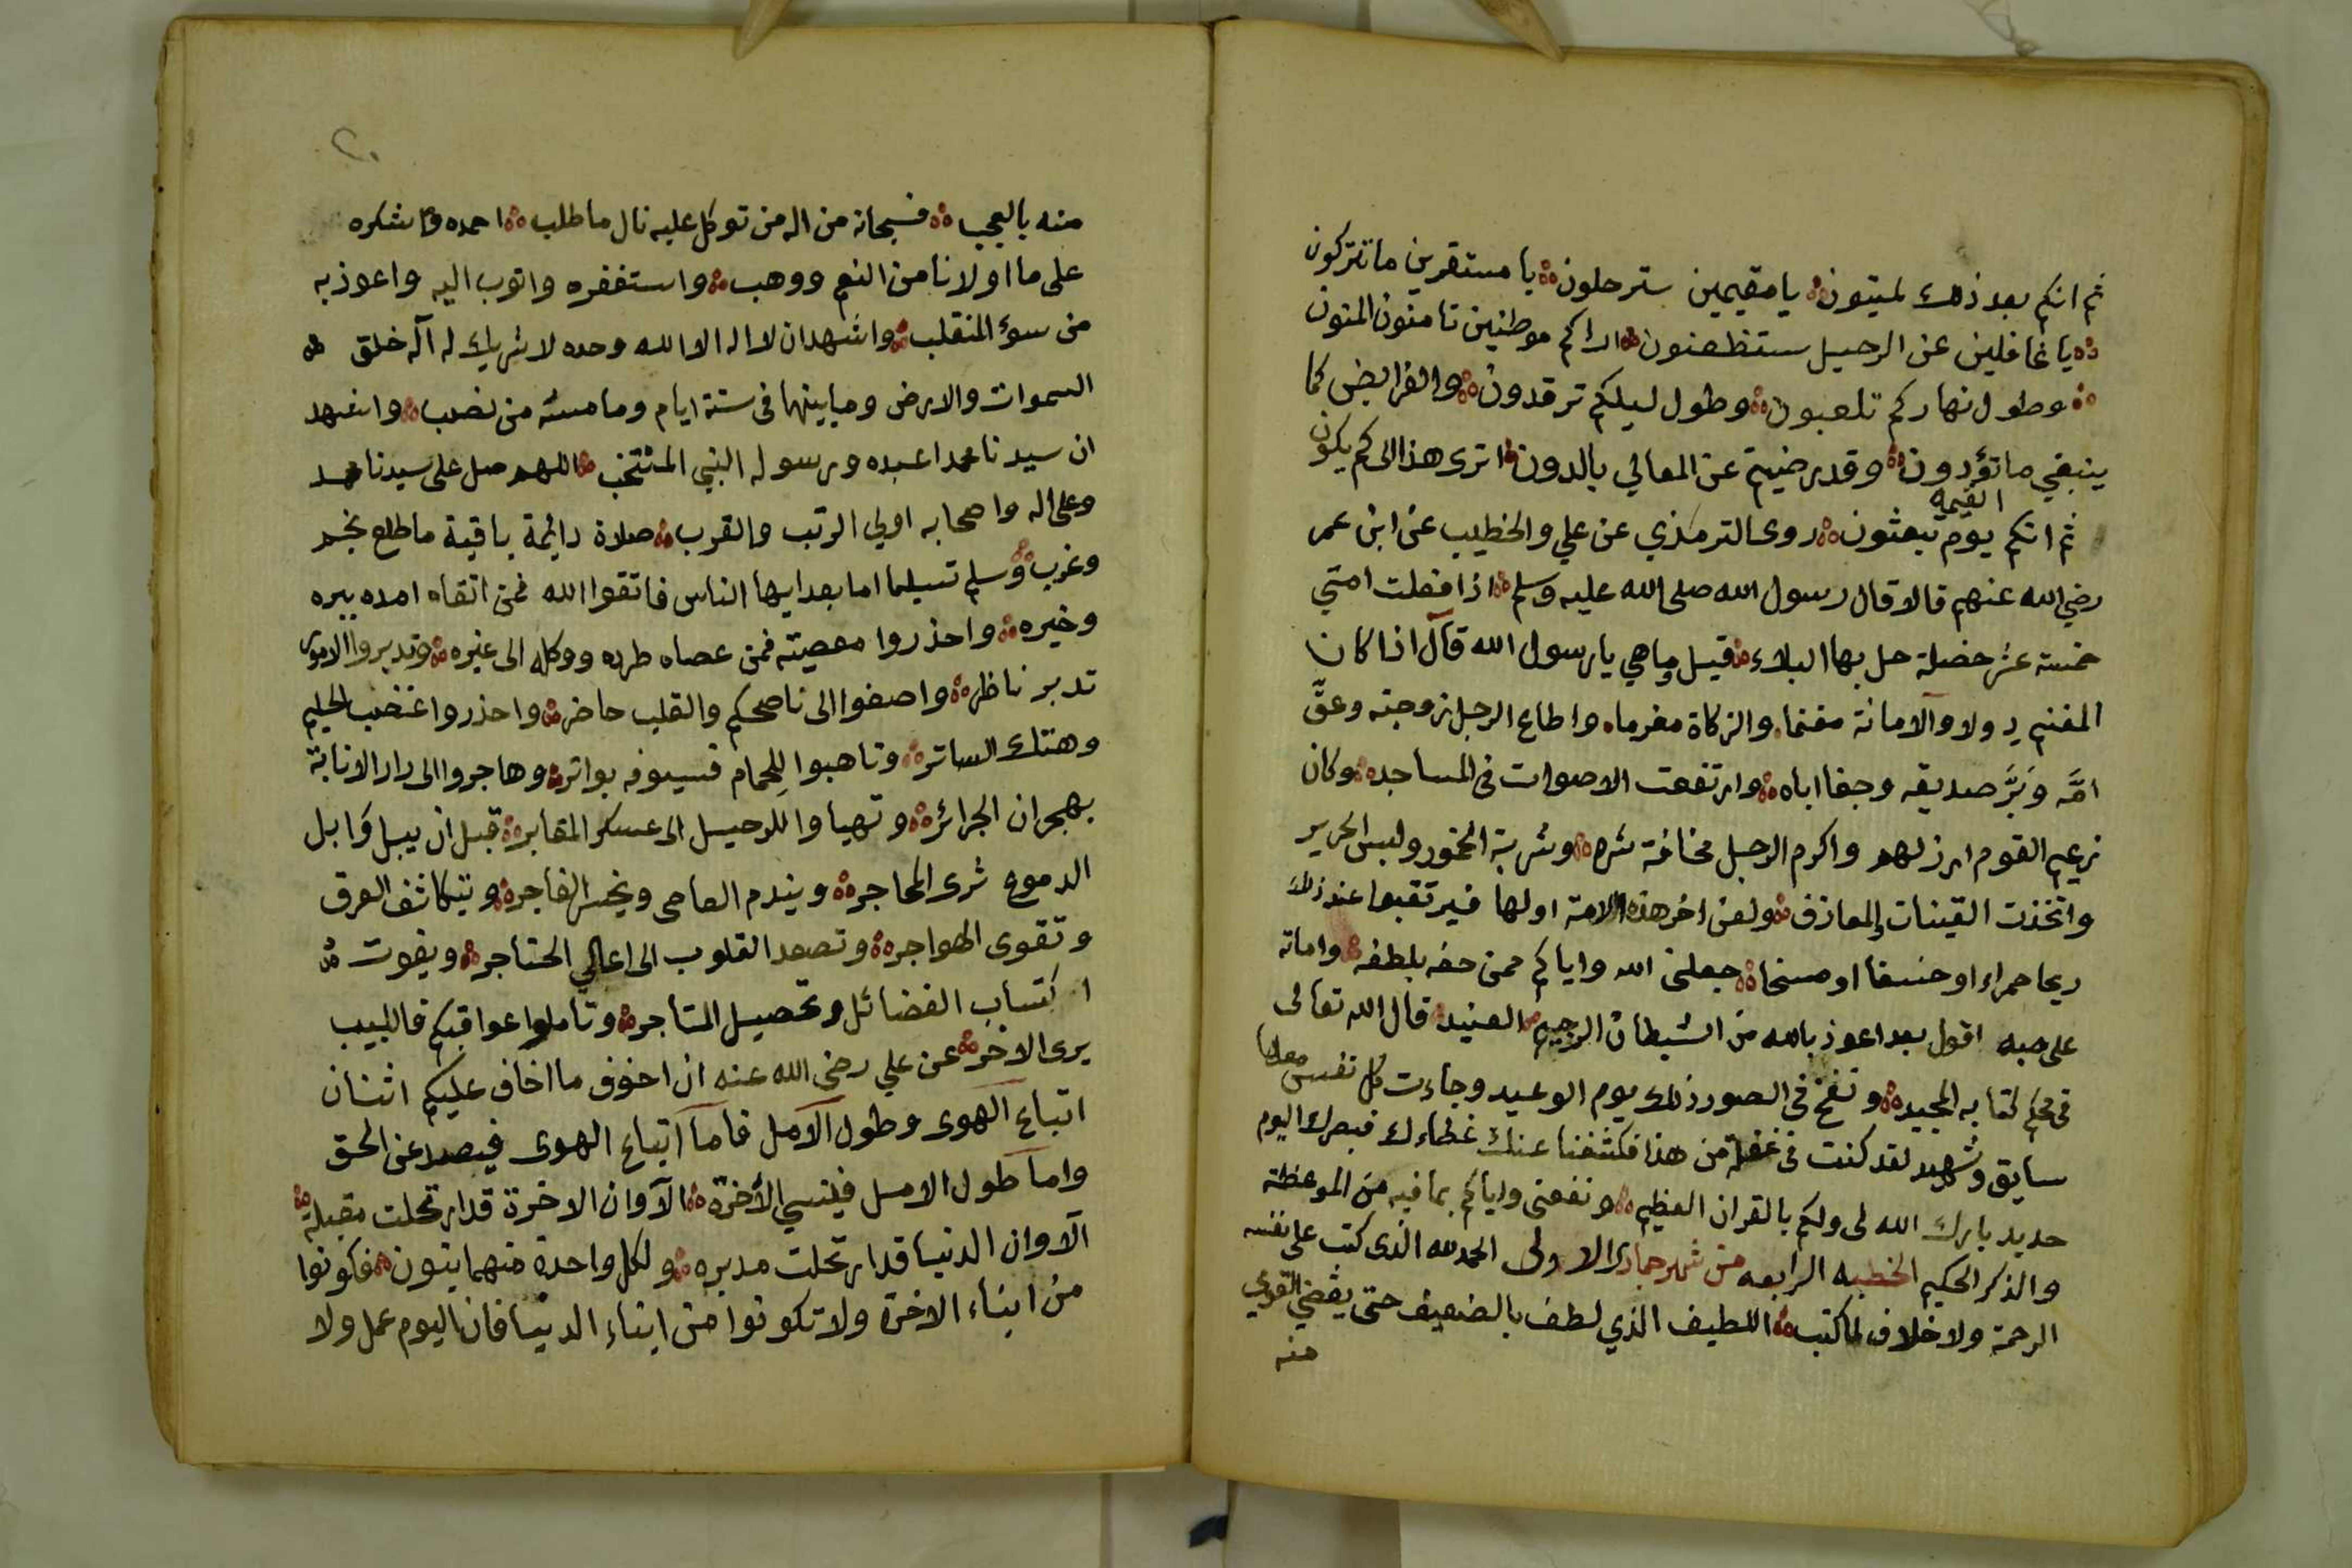 ثم انكم بعد ذلك لميتون يا مقيمين سترحلون يا مستقرين ما تتركون
يا غافلين عن الرحيل ستظعنون اراكم موطنين تامنون المنون
وطول نهاركم تلعبون وطول ليلكم ترقدون والفرايض كما
ينبغي ما تؤدون وقد رضيتم عن المعالي بالدون اترى هذا الى كم يكون
ثم انكم يوم القيمه تبعثون روى الترمذي عن علي والخطيب عن ابن عمر
رضي الله عنهم قالا قال رسول الله صلى الله عليه وسلم اذا فعلت امتي
خمسة عشر خصلة حل بها البلاء قيل وما هي يا رسول الله قال اذا كان
المغنم دولا والامانة مغنما والزكاة مغرما واطاع الرجل زوجته وعقّ
امّه وَبَرَّ صديقه وجفا اباه وارتفعت الاصوات في المساجد وكان
زعيم القوم ارذلهم واكرم الرجل مخافة شره وشربة الخمور ولبس الحرير
واتخذت القينات والمعازف ولعن اخر هذه الامة اولها فيرتقبوا عند ذلك
ريحا حمراء او خسفا او مسخا جعلني الله واياكم ممن حفه بلطفه واماته
على حبه اقول بعد اعوذ بالله من الشيطان الرجيم العنيد قال الله تعالى
في محكم كتابه المجيد ونفخ في الصور ذلك يوم الوعيد وجاءت كل نفس معها
سايق وشهيد لقد كنت في غفلة من هذا فكشفنا عنك غطاءك فبصرك اليوم
حديد بارك الله لي ولكم بالقران العظيم ونفعني واياكم بما فيه من الموعظة
والذكر الحكيم الخطبه الرابعه من شهر جمادى الاولى الحمد لله الذى كتب على نفسه
الرحمة ولا خلاف لما كتب اللطيف الذي لطف بالضعيف حتى يقضي القوي
منه
٢٠
منه بالعجب فسبحانه من اله من توكل عليه نال ما طلب احمده واشكره
على ما اولانا من النعم ووهب واستغفره واتوب اليه واعوذ به
من سوء المنقلب واشهد ان لا اله الا الله وحده لا شريك له اله خلق
السموات والارض وما بينهما في ستة ايام وما مسه من نصب واشهد
ان سيدنا محمدا عبده ورسوله النبي المنتخب اللهم صل على سيدنا محمد
وعلى اله واصحابه اولي الرتب والقرب صلاة دائمة باقية ما طلع نجم
وغرب وسلم تسليما اما بعد ايها الناس فاتقوا الله فمن اتقاه امده ببره
وخيره واحذروا معصيته فمن عصاه طرده ووكله الى غيره وتدبروا الامور
تدبر ناظر واصغوا الى ناصحكم والقلب حاضر واحذروا غضب الحليم
وهتك الساتر وتاهبوا لِلحمام فسيوفه بواتر وهاجروا الى دار الانابة
بهجران الجرائر وتهياوا للرحيل الى عسكر المقابر قبل ان يبل وَابل
الدموع ثرى المحاجر ويندم العاصي ويخسر الفاجر ويتكاثف العرق
وتقوى الهواجر وتصعد القلوب الى اعالي الحناجر ويفوت
اكتساب الفضائل وتحصيل المتاجر وتاملوا عواقبكم فاللبيب
يرى الاخر عن علي رضي الله عنه ان اخوف ما اخاف عليكم اثنان
اتباع الهوى وطول الامل فاما اتباع الهوى فيصد عن الحق
واما طول الامل فينسي الأخرة الا وان الاخرة قد ارتحلت مقبلة
الا وان الدنيا قد ارتحلت مدبره ولكل واحدة منهما بنون فكونوا
من ابناء الاخرة ولا تكونوا من ابناء الدنيا فان اليوم عمل ولا